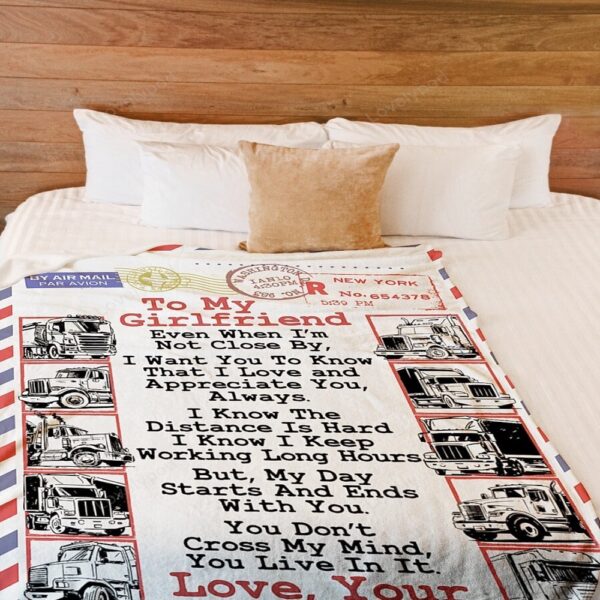 BY AIR MAIL
PAR AVION
WASHINGTON
4:30PM
R
NEW YORK
No. 654378
5:39 PM
To My
Girlfriend
Even When I'm
Not Close By,
I Want You To Know
That I Love and
Appreciate You,
Always.
I Know The
Distance Is Hard
I Know I Keep
Working Long Hours
But, My Day
Starts And Ends
With You.
You Don't
Cross My Mind,
You Live In It.
Love, Your